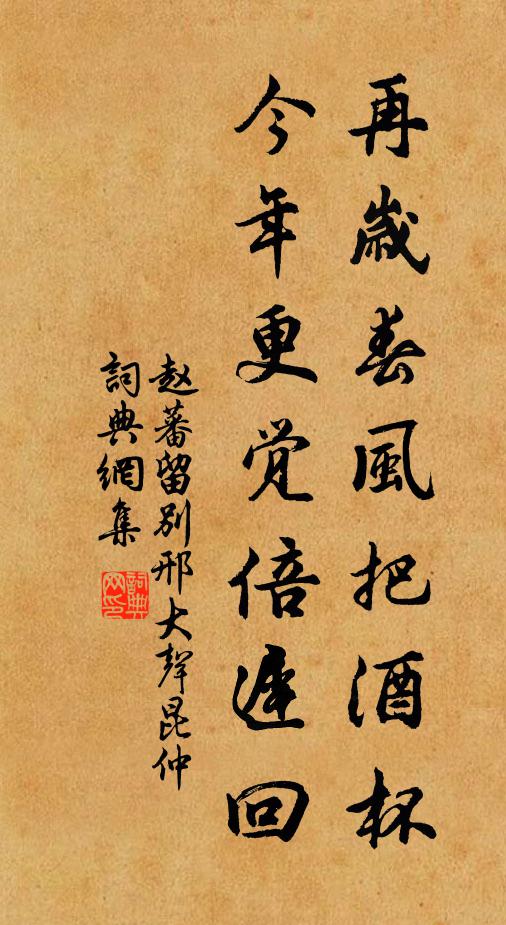 再歲春風把酒杯
今年更覺倍遲回
赵蕃留別邢大聲昆仲
詞典網集
詞典网印